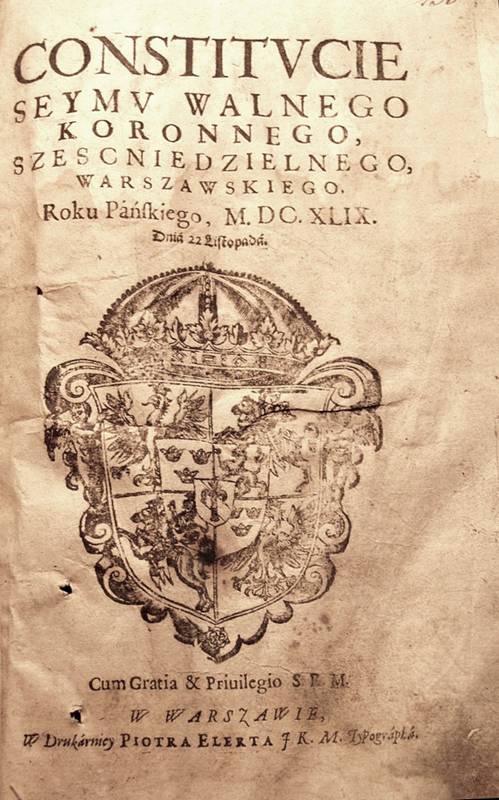 CONSTITVCIE
SEYMV WALNEGO
KORONNEGO,
SZESCNIEDZIELNEGO,
WARSZAWSKIEGO.
Roku Páńſkiego, M. DC. XLIX.
Dniá 22 Liſtopadá.
Cum Gratia & Priuilegio S. R. M.
W WARSZAWIE,
W Drukárniey PIOTRA ELERTA J K. M. Typográphá.